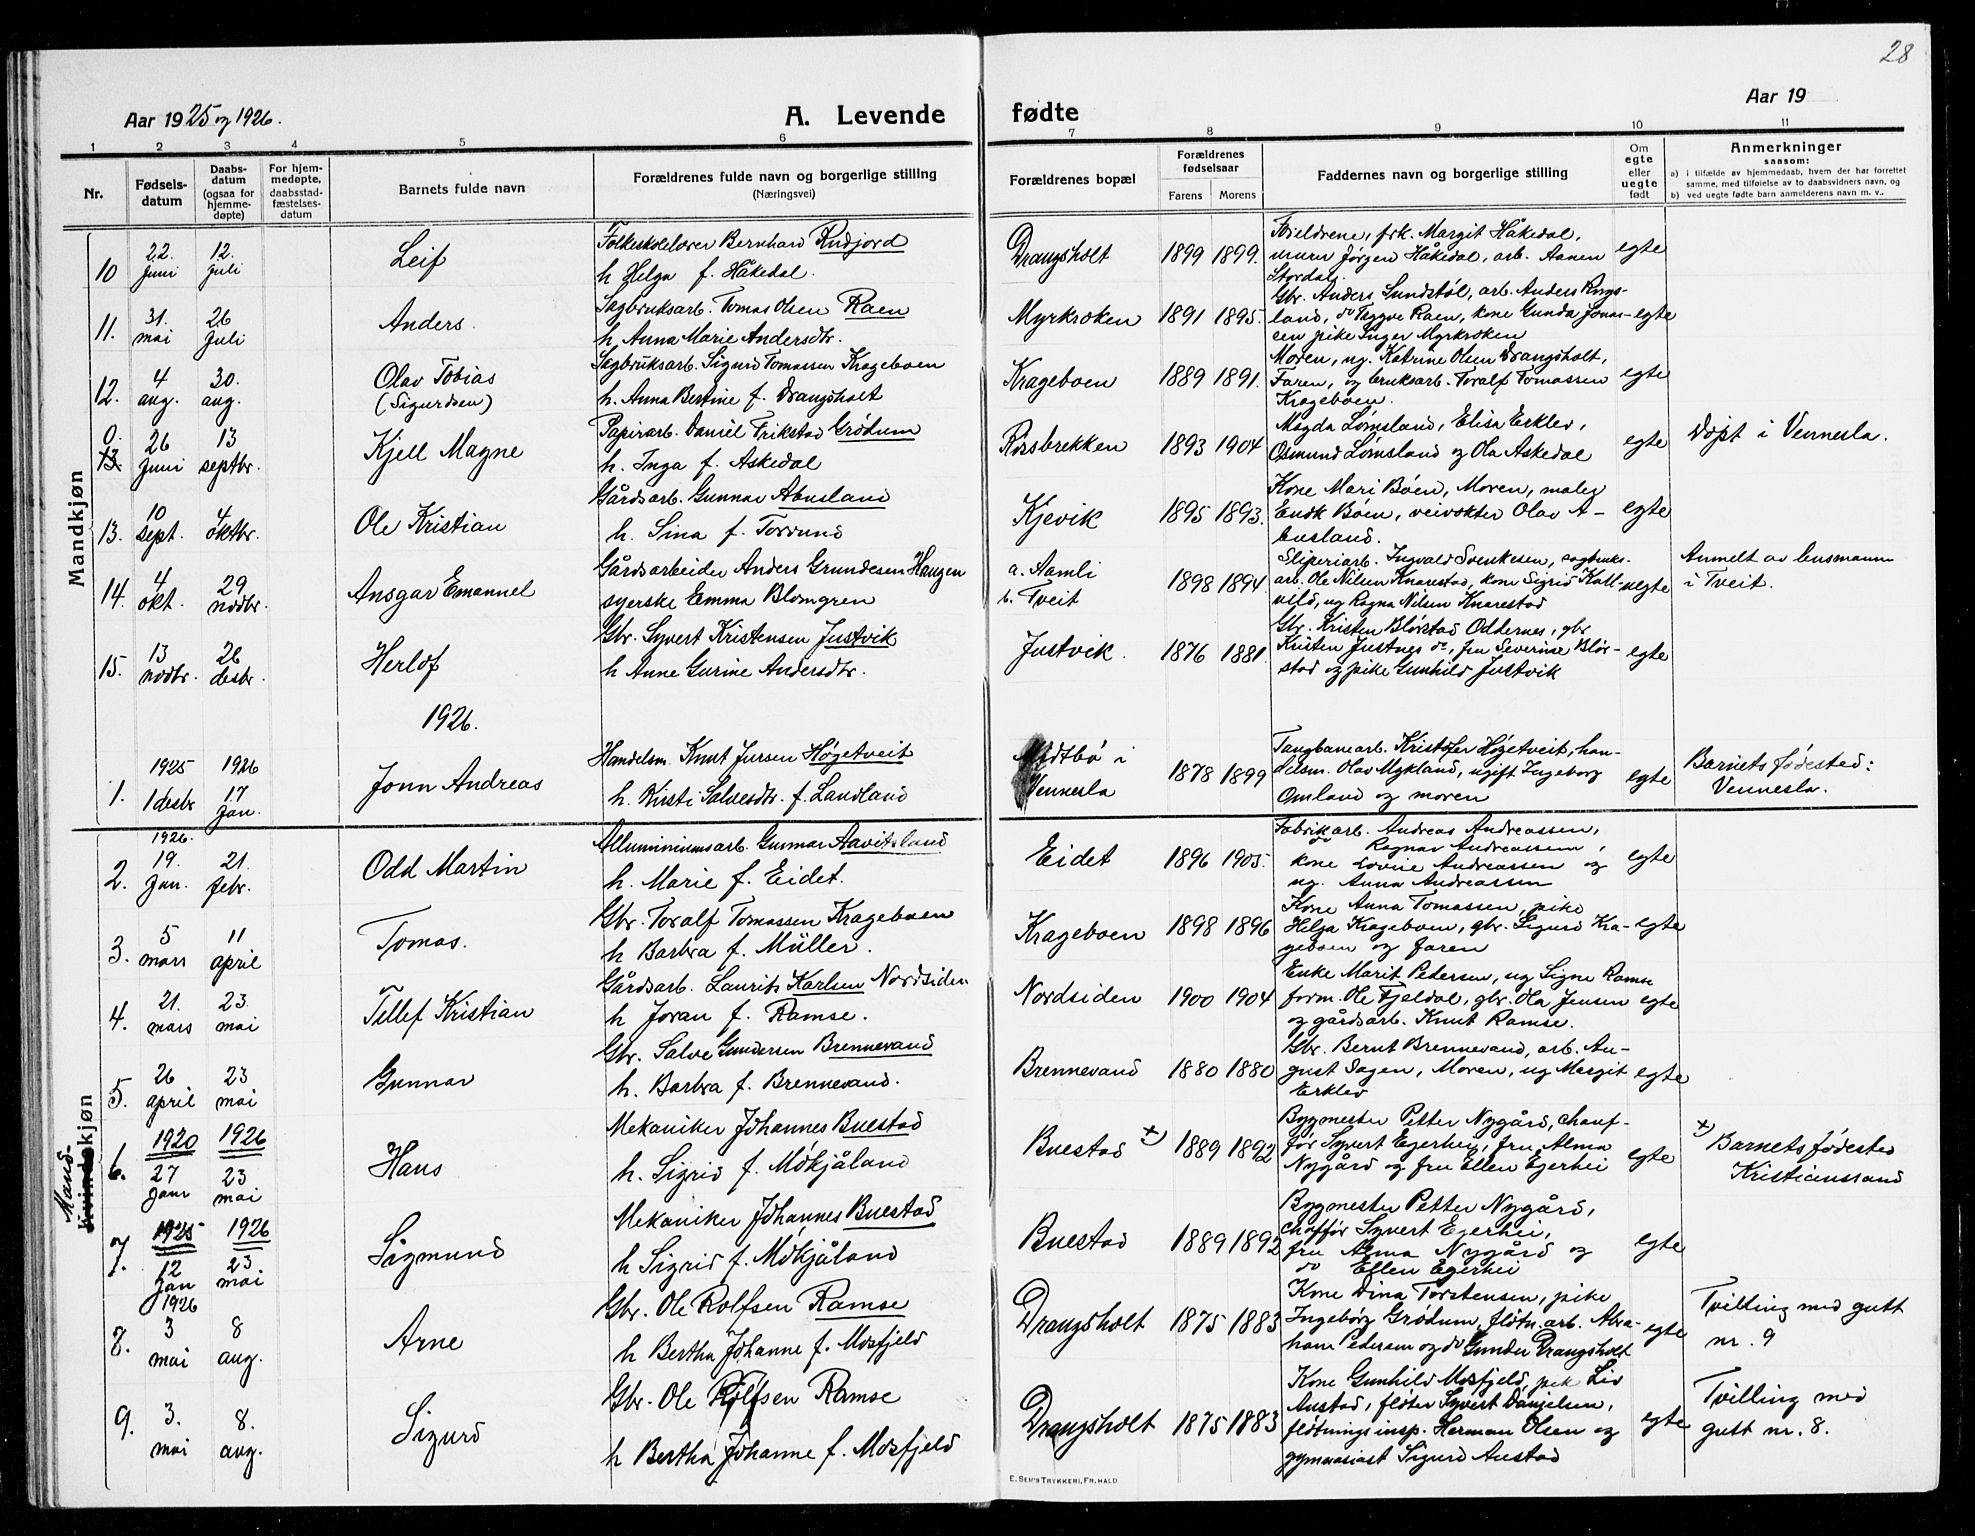 28
Aar 1925 og 1926.
A. Levende fødte
Aar 19
1 2 3 4 5 6 7 8 9 10 11
Nr.
Fødsels-
datum
Daabs-
datum
(ogsaa for
hjemme-
døpte)
For hjem-
medøpte,
daabsstad-
fæstelses-
datum
Barnets fulde navn
Forældrenes fulde navn og borgerlige stilling
(Næringsvei)
Forældrenes bopæl
Forældrenes
fødselsaar
Farens Morens
Faddernes navn og borgerlige stilling
Om
egte
eller
uegte
født
Anmerkninger
saasom:
a) i tilfælde av hjemmedaab, hvem der har forrettet
samme, med tilføielse av to daabsvidners navn, og
b) ved uegte fødte barn anmelderens navn m. v..
Mandkjøn
10 22. juni 12. juli
Leif
Folkeskolelærer Bernhard Rudjord
h Helga f. Håkedal.
Drangsholt 1899 1899.
Foreldrene, frk. Margit Håkedal,
murer Jørgen Håkedal, arb. Aanen
Stordal.
egte
11. 31. mai 26 juli
Anders.
Sagbruksarb. Tomas Olsen Raen
h. Anna Marie Andersdtr.
Myrkroken 1891 1895.
Gbr. Anders Sundstøl, arb. Anders Rugs-
land, do Trygve Raen, kone Gunda Jonas-
sen pike Inger Myrkroken
egte
12. 4 aug. 30. aug.
Olav Tobias
(Sigurdsen)
Sagbruksarb. Sigurd Tomassen Krageboen
h. Anna Bertine f. Drangsholt
Krageboen 1889 1891.
Moren, ug. Katrine Olsen Drangsholt,
Faren, og bruksarb. Toralf Tomassen
Krageboen.
egte
0. 13. 26 juni 13 septbr.
Kjell Magne
Papirarb. Daniel Frikstad Grødum
h. Inga f. Askedal
Rossbrekken 1893 1904
Magda Lømsland, Elisa Erklev,
Osmund Lømsland og Ola Askedal
egte
Døpt i Vennesla.
13. 10 sept. 4 oktbr.
Ole Kristian
Gårdsarb. Gunnar Abusland
h. Sina f. Torsund
Kjevik 1895 1893.
Kone Mari Bøen, Moren, maler
Enok Bøen, veivokter Olav A-
busland.
egte
14. 4 okt. 29 novbr.
Ansgar Emanuel
Gårdsarbeider Anders Grundesen Haugen
syerske Emma Blomgren
a. Aamli
b. Tveit
1898 1894
Sliperiarb. Ingvald Svenkesen, sagbruks-
arb. Ole Nilsen Knarestad, kone Sigrid Katt-
vild, ug Ragna Nilsen Knarestad
uegte
Anmelt av lensmann
i Tveit.
15. 13 novbr. 26 desbr.
Herlof
Gbr. Syvert Kristensen Justvik
h Anne Gurine Andersdtr.
Justvik. 1876 1881.
Gbr. Kristen Blørstad Oddernes, gbr
Kristen Justnes do, fru Severine Blør-
stad og pike Gunhild Justvik
egte
1926.
1. 1925 1 desbr 1926 17 jan.
Jonn Andreas
Handelsm. Knut Jursen Høgetveit
h. Kirsti Salvesdtr. f. Landland
Midtbø i
Vennesla
1878 1899
Taugbanearb. Kristofer Høgetveit, han-
delsm. Olav Mykland, ugift Ingeborg
Omland og moren
egte
Barnets fødested:
Vennesla.
Mand-
Kvindekjøn
1926.
2. 19. jan. 21. febr.
Odd Martin
Alluminiumsarb. Gunnar Aavitsland
h. Marie f. Eidet.
Eidet 1896 1905.
Fabrikarb. Andreas Andreassen,
do Ragnar Andreassen,
kone Lovise Andreassen og
ug. Anna Andreassen
egte
3. 5 mars 11 april
Tomas.
Gbr. Toralf Tomassen Krageboen
h Barbra f. Müller.
Krageboen 1898 1896
Kone Anna Tomassen, pike
Helga Krageboen, gbr. Sigurd Kra-
geboen og faren
egte
4. 21. mars 23. mai
Tellef Kristian
Gårdsarb. Laurits Karlsen Nordsiden
h Joran f. Ramse.
Nordsiden 1900 1904
Enke Marit Pedersen, ug Signe Ramse
form. Ole Fjeldal, gbr. Ola Jensen
og gårdsarb. Knut Ramse.
egte
5. 26 april 23 mai
Gunnar
Gbr. Salve Gundersen Brennevand
h. Barbra f. Brennevand.
Brennevand 1880 1880
Gbr. Bernt Brennevand, arb. Au-
gust Dagen, Moren, ug Margit
Erklev
egte
6. 1920 27 janr 1926 23 mai
Hans
Mekaniker Johannes Buestad
h. Sigrid f. Mokjåland
Buestad +) 1889 1892
Bygmester Petter Nygård, chauf-
før Syvert Egerhei, fru Alma
Nygård og fru Ellen Egerhei
egte
+) Barnets fødested
Kristianssand
7. 1925 12 jan 1926 23 mai
Sigmund
Mekaniker Johannes Buestad
h Sigrid f. Mokjåland
Buestad 1889 1892
Bygmester Petter Nygård,
chaffør Syvert Egerhei,
fru Alma Nygård og
do Ellen Egerhei
egte
1926
8. 3 mai 8 aug.
Arne
Gbr. Ole Rolfsen Ramse
h Bertha Johanne f. Mosfjeld
Drangsholt 1875 1883
Kone Dina Torstensen, pike
Ingebørg Grødum, fløtn.arb. Abra-
ham Pedersen og do Gunder Drangsholt
egte
Tvilling med gutt
nr. 9
9. 3. mai 8. aug.
Sigurd
Gbr. Ole Rolfsen Ramse
h Bertha Johanne f. Mosfjeld
Drangsholt 1875 1883
Kone Gunhild Mosfjeld, pik Liv
Austad, fløter Syvert Danjelsen,
fløtningsinsp. Herman Olsen og
gymnasiast Sigurd Austad
egte
Tvilling med
gutt nr. 8.
E. Sem's Trykkeri, Fr.hald